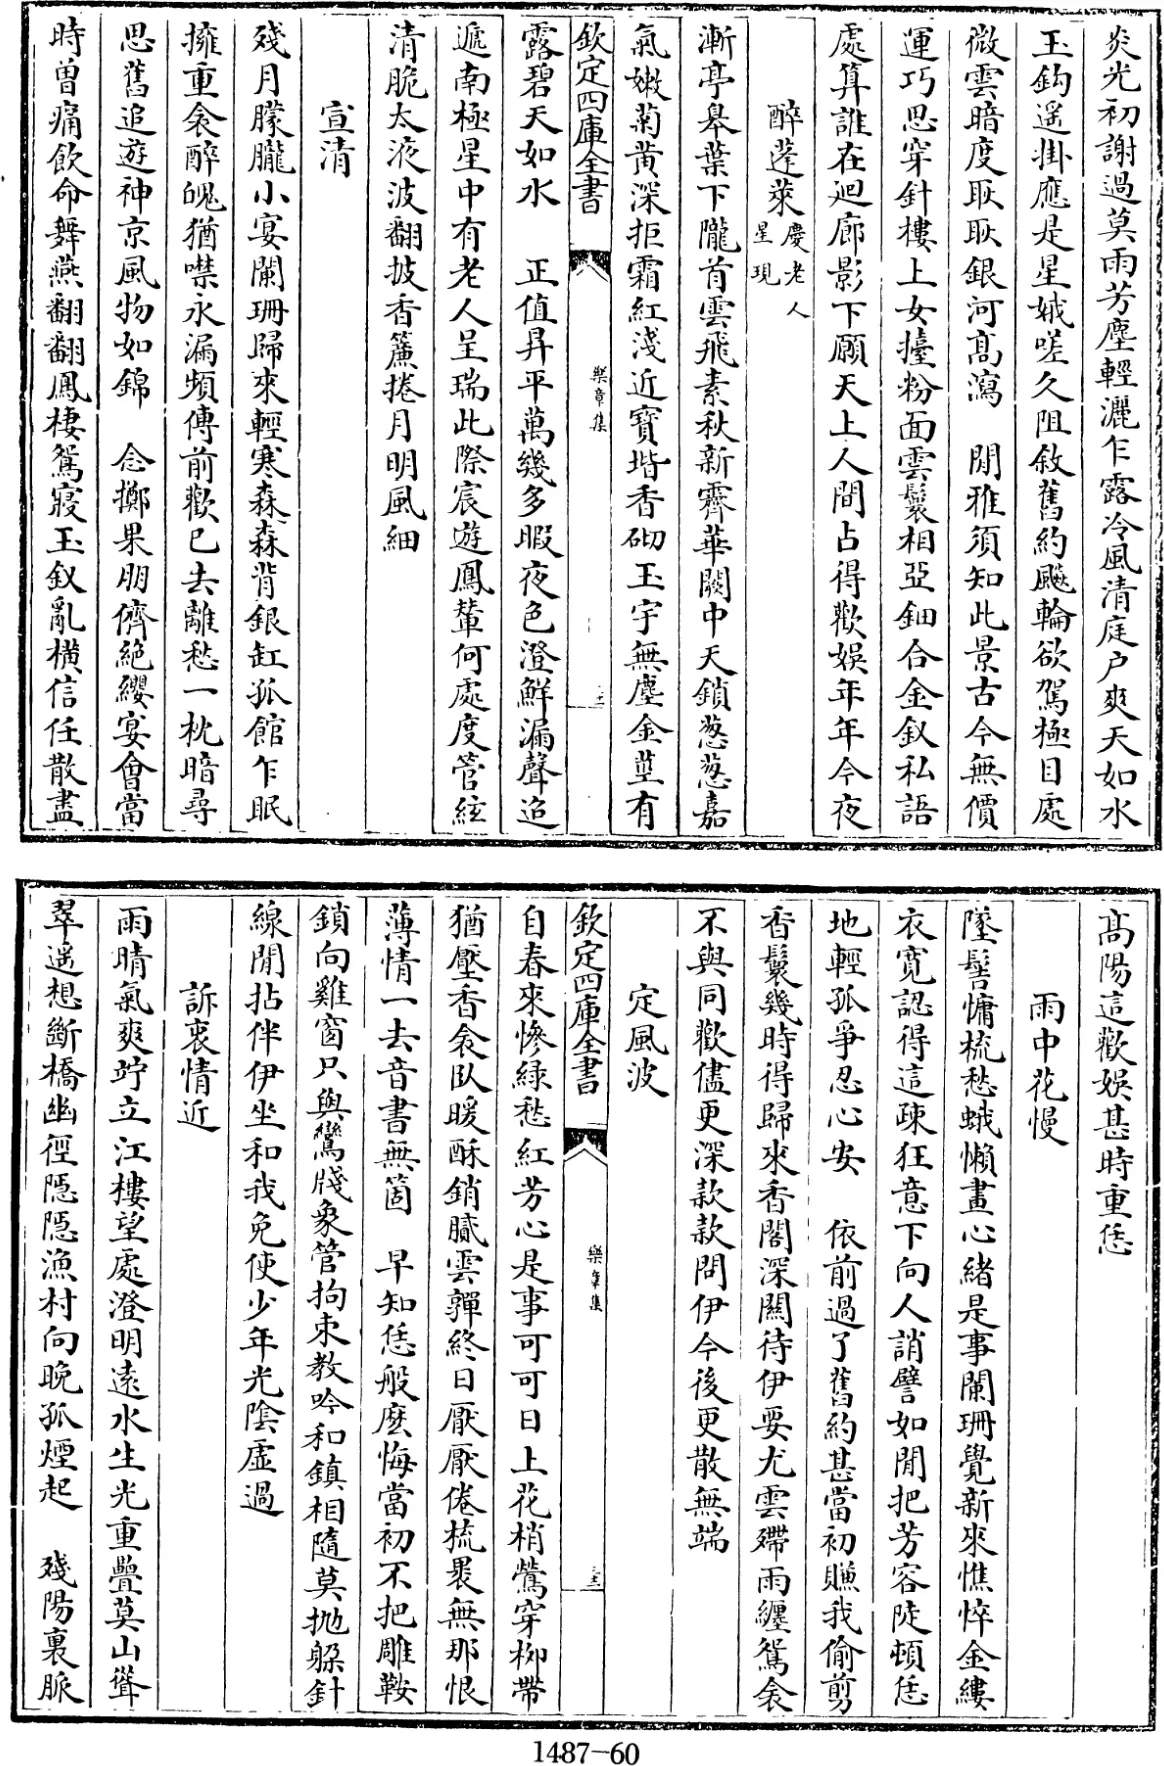 炎光初謝過莫雨芳塵輕灑乍露冷風清庭户爽天如水
玉鈎遥掛應是星娥嗟久阻敘舊約飈輪欲駕極目處
微雲暗度耿耿銀河髙瀉　閒雅須知此景古今無價
運巧思穿針樓上女擡粉面雲鬟相亞鈿合金釵私語
處算誰在廻廊影下願天上人間占得歡娱年年今夜
醉蓬萊慶老人星現
漸亭臯葉下隴首雲飛素秋新霽華闕中天鎖葱葱嘉
氣嫩菊黄深拒霜紅淺近寳堦香砌玉宇無塵金莖有
欽定四庫全書
樂章集
十二
露碧天如水　正值昇平萬幾多暇夜色澄鮮漏聲迢
遞南極星中有老人呈瑞此際宸遊鳳輦何處度管絃
清脆太液波翻披香簾捲月明風細
宣清
殘月朦朧小宴闌珊歸來輕寒森森背銀缸孤館乍眠
擁重衾醉魄猶噤永漏頻傳前歡已去離愁一枕暗尋
思舊追遊神京風物如錦　念擲果朋儕絶纓宴會當
時曽痛飲命舞燕翻翻鳳棲鴛寢玉釵亂横信任散盡
髙陽這歡娱甚時重恁
雨中花慢
墜髻慵梳愁蛾懶畫心緒是事闌珊覺新來憔悴金縷
衣寛認得這疎狂意下向人誚譬如閒把芳容陡頓恁
地輕孤爭忍心安　依前過了舊約甚當初賺我偷剪
香鬟幾時得歸來香閣深關待伊要尤雲殢雨纒鴛衾
不與同歡儘更深款款問伊今後更散無端
定風波
欽定四庫全書
樂章集
十三
自春來慘緑愁紅芳心是事可可日上花梢鶯穿栁帶
猶壓香衾臥暖酥銷膩雲嚲終日厭厭倦梳褁無那恨
薄情一去音書無箇　早知恁般麽悔當初不把雕鞍
鎖向雞窗只與鸞牋象管拘束教吟和鎮相隨莫抛躱針
線閒拈伴伊坐和我免使少年光隂虚過
訴衷情近
雨晴氣爽竚立江樓望處澄明逺水生光重疊莫山聳
翠遥想斷橋幽徑隠隠漁村向晚孤煙起　殘陽裏脈
1487-60